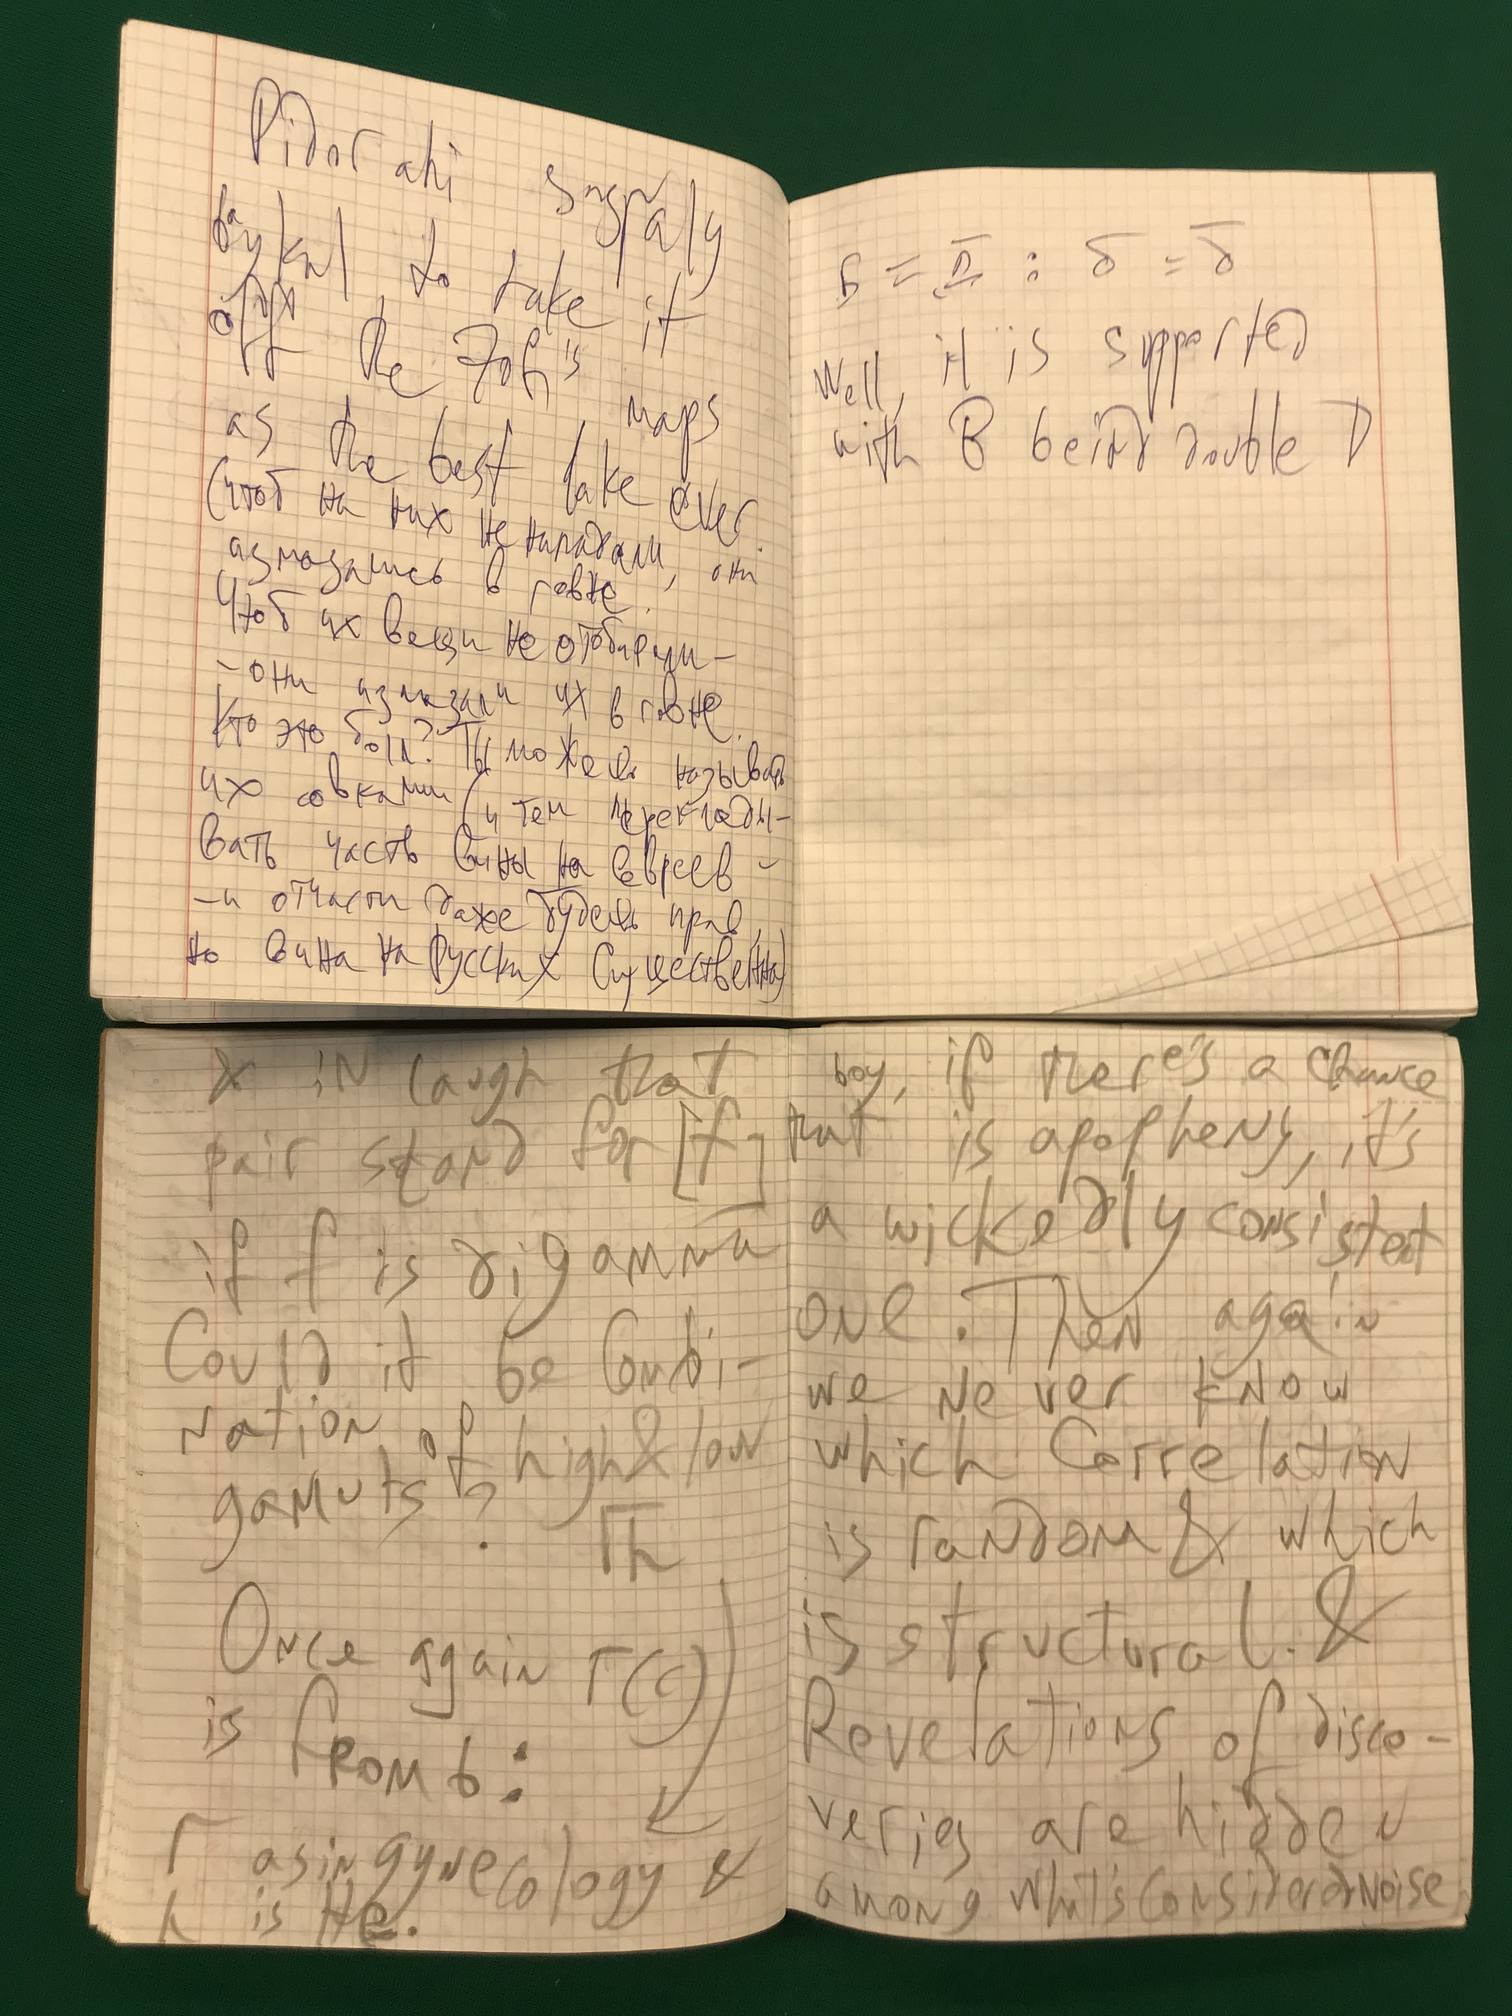 Pidorahi
baykal to take it
off the maps
as the best lake ever.
(чтоб на них не нападали, они
измазались в говне.
Чтоб их вещи не отобирали –
– они измазали их в говне.
Кто это был? Ты можешь называть
их совками (и тем перeклады-
вать часть вины на евреев –
– и отчасти даже будешь прав,
но вина на русских существенна)
Б = : =
Well, it is supported
with B being double D
& in laugh that
pair stand for [f]
if f is digamma
Could it be Combi-
nation of high & low
gamuts?
Гh
Once again Г(c)
is from b:
Г as in gynecology &
h is He.
boy, if there's a chance
that is apopheny, it's
a wickedly consistent
one. Then again
we never know
which Correlation
is random & which
is structural. &
Revelations of disco-
veries are hidden
among what's considered noise